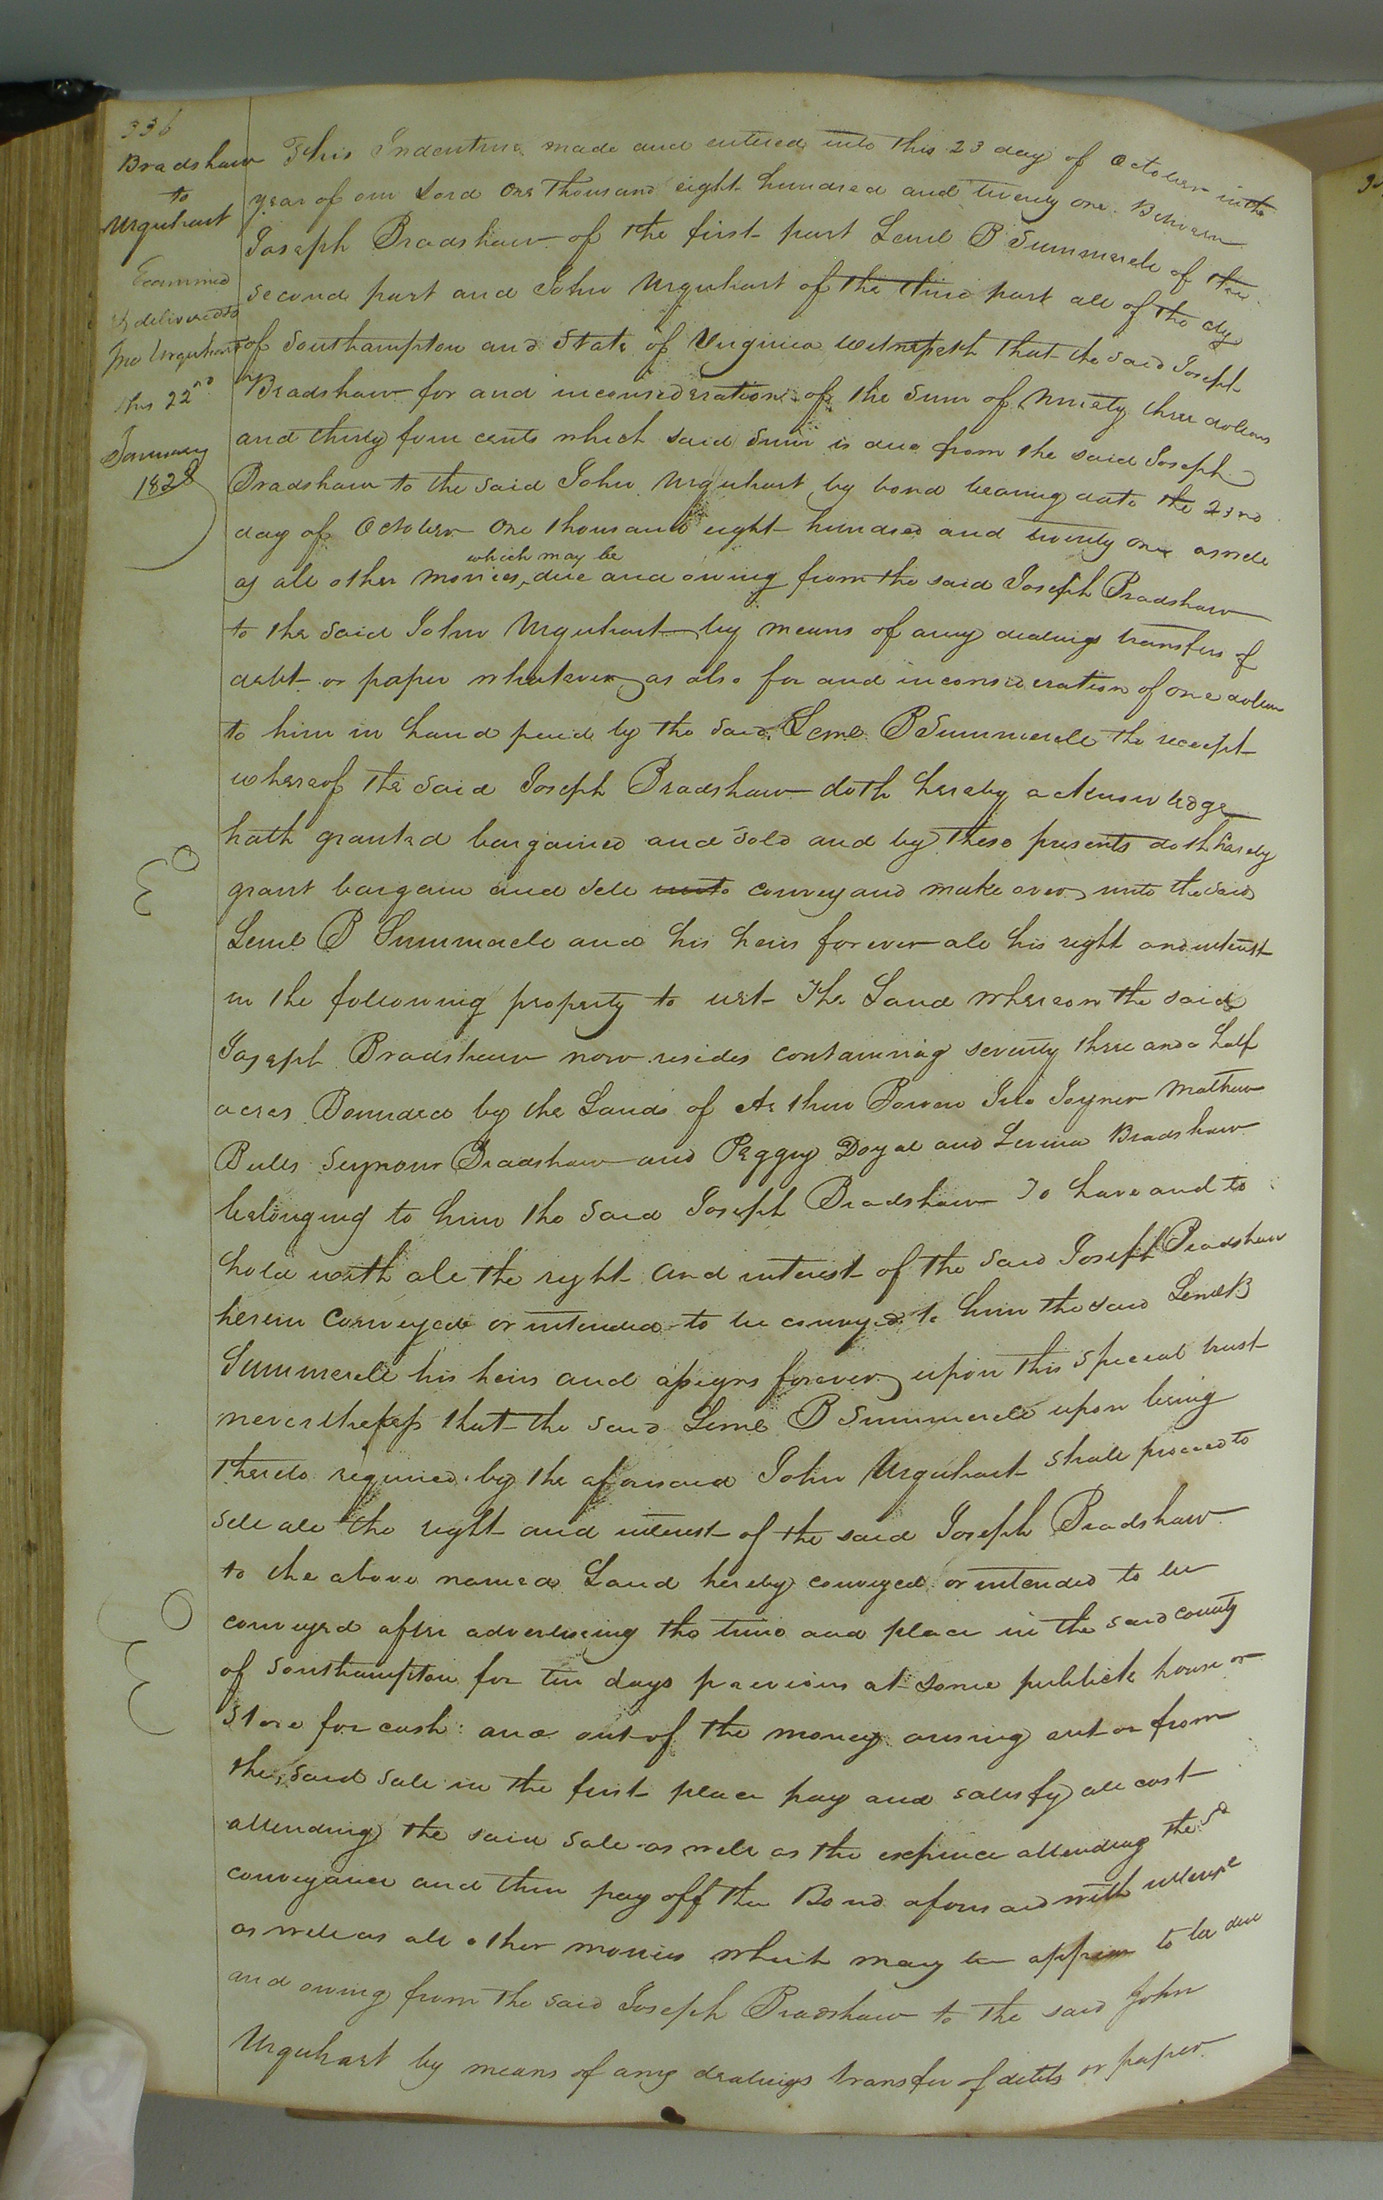 336
Bradshaw
to
Urquhart
Examined
& delivered to
Jno Urquhart
this 22nd
January
1828
This Indenture made and entered into this 23 day of October in the
year of our Lord One thousand eight hundred and twenty one Between
Joseph Bradshaw of the first part Leml B Summerell of the
second part and John Urquhart of the third part all of the cty
of Southampton and State of Virginia witnesseth that the said Joseph
Bradshaw for and in consideration of the Sum of Ninety three dollars
and thirty four cents which said Sum is due from the said Joseph
Bradshaw to the said John Urquhart by bond bearing date the 23rd
day of October One thousand eight hundred and twenty one as well
which may be
as all other monies due and owing from the said Joseph Bradshaw
to the said John Urquhart by means of any dealings transfers of
debt or paper whatever as also for and in consideration of one dollar
to him in hand paid by the said Leml B Summerell the receipt
whereof the said Joseph Bradshaw doth hereby acknowledge
hath granted bargained and sold and by these presents doth hereby
grant bargain and sell unto convey and make over unto the said
Leml B Summerell and his heirs forever all his right and interest
in the following property to wit The Land whereon the said
Joseph Bradshaw now resides containing seventy three and a half
acres Bounded by the Lands of Arthur Bowen Joyner Mathew
Butts Seymour Bradshaw and Peggy Doyal and Levina Bradshaw
belonging to him the said Joseph Bradshaw To have and to
hold with all the right and interest of the said Joseph Bradshaw
herein Conveyed or intended to be conveyed to him the said Leml B
Summerell his heirs and assigns forever upon this special trust
nevertheless that the said Leml B Summerell upon being
thereto required by the aforesaid John Urquhart shall proceed to
sell all the right and interest of the said Joseph Bradshaw
to the above named Land hereby conveyed or intended to be
conveyed after advertising the time and place in the said county
of Southampton for ten days previous at some publick house or
Store for cash and out of the money arising out or from
the said sale in the first place pay and satisfy all cost
attending the said sale as well as the expence attending the sd
conveyance and then pay off the Bond aforesaid with interest
as well as all other monies which may be appear to be due
and owing from the said Joseph Bradshaw to the said John
Urquhart by means of any dealings transfer of debts or paper